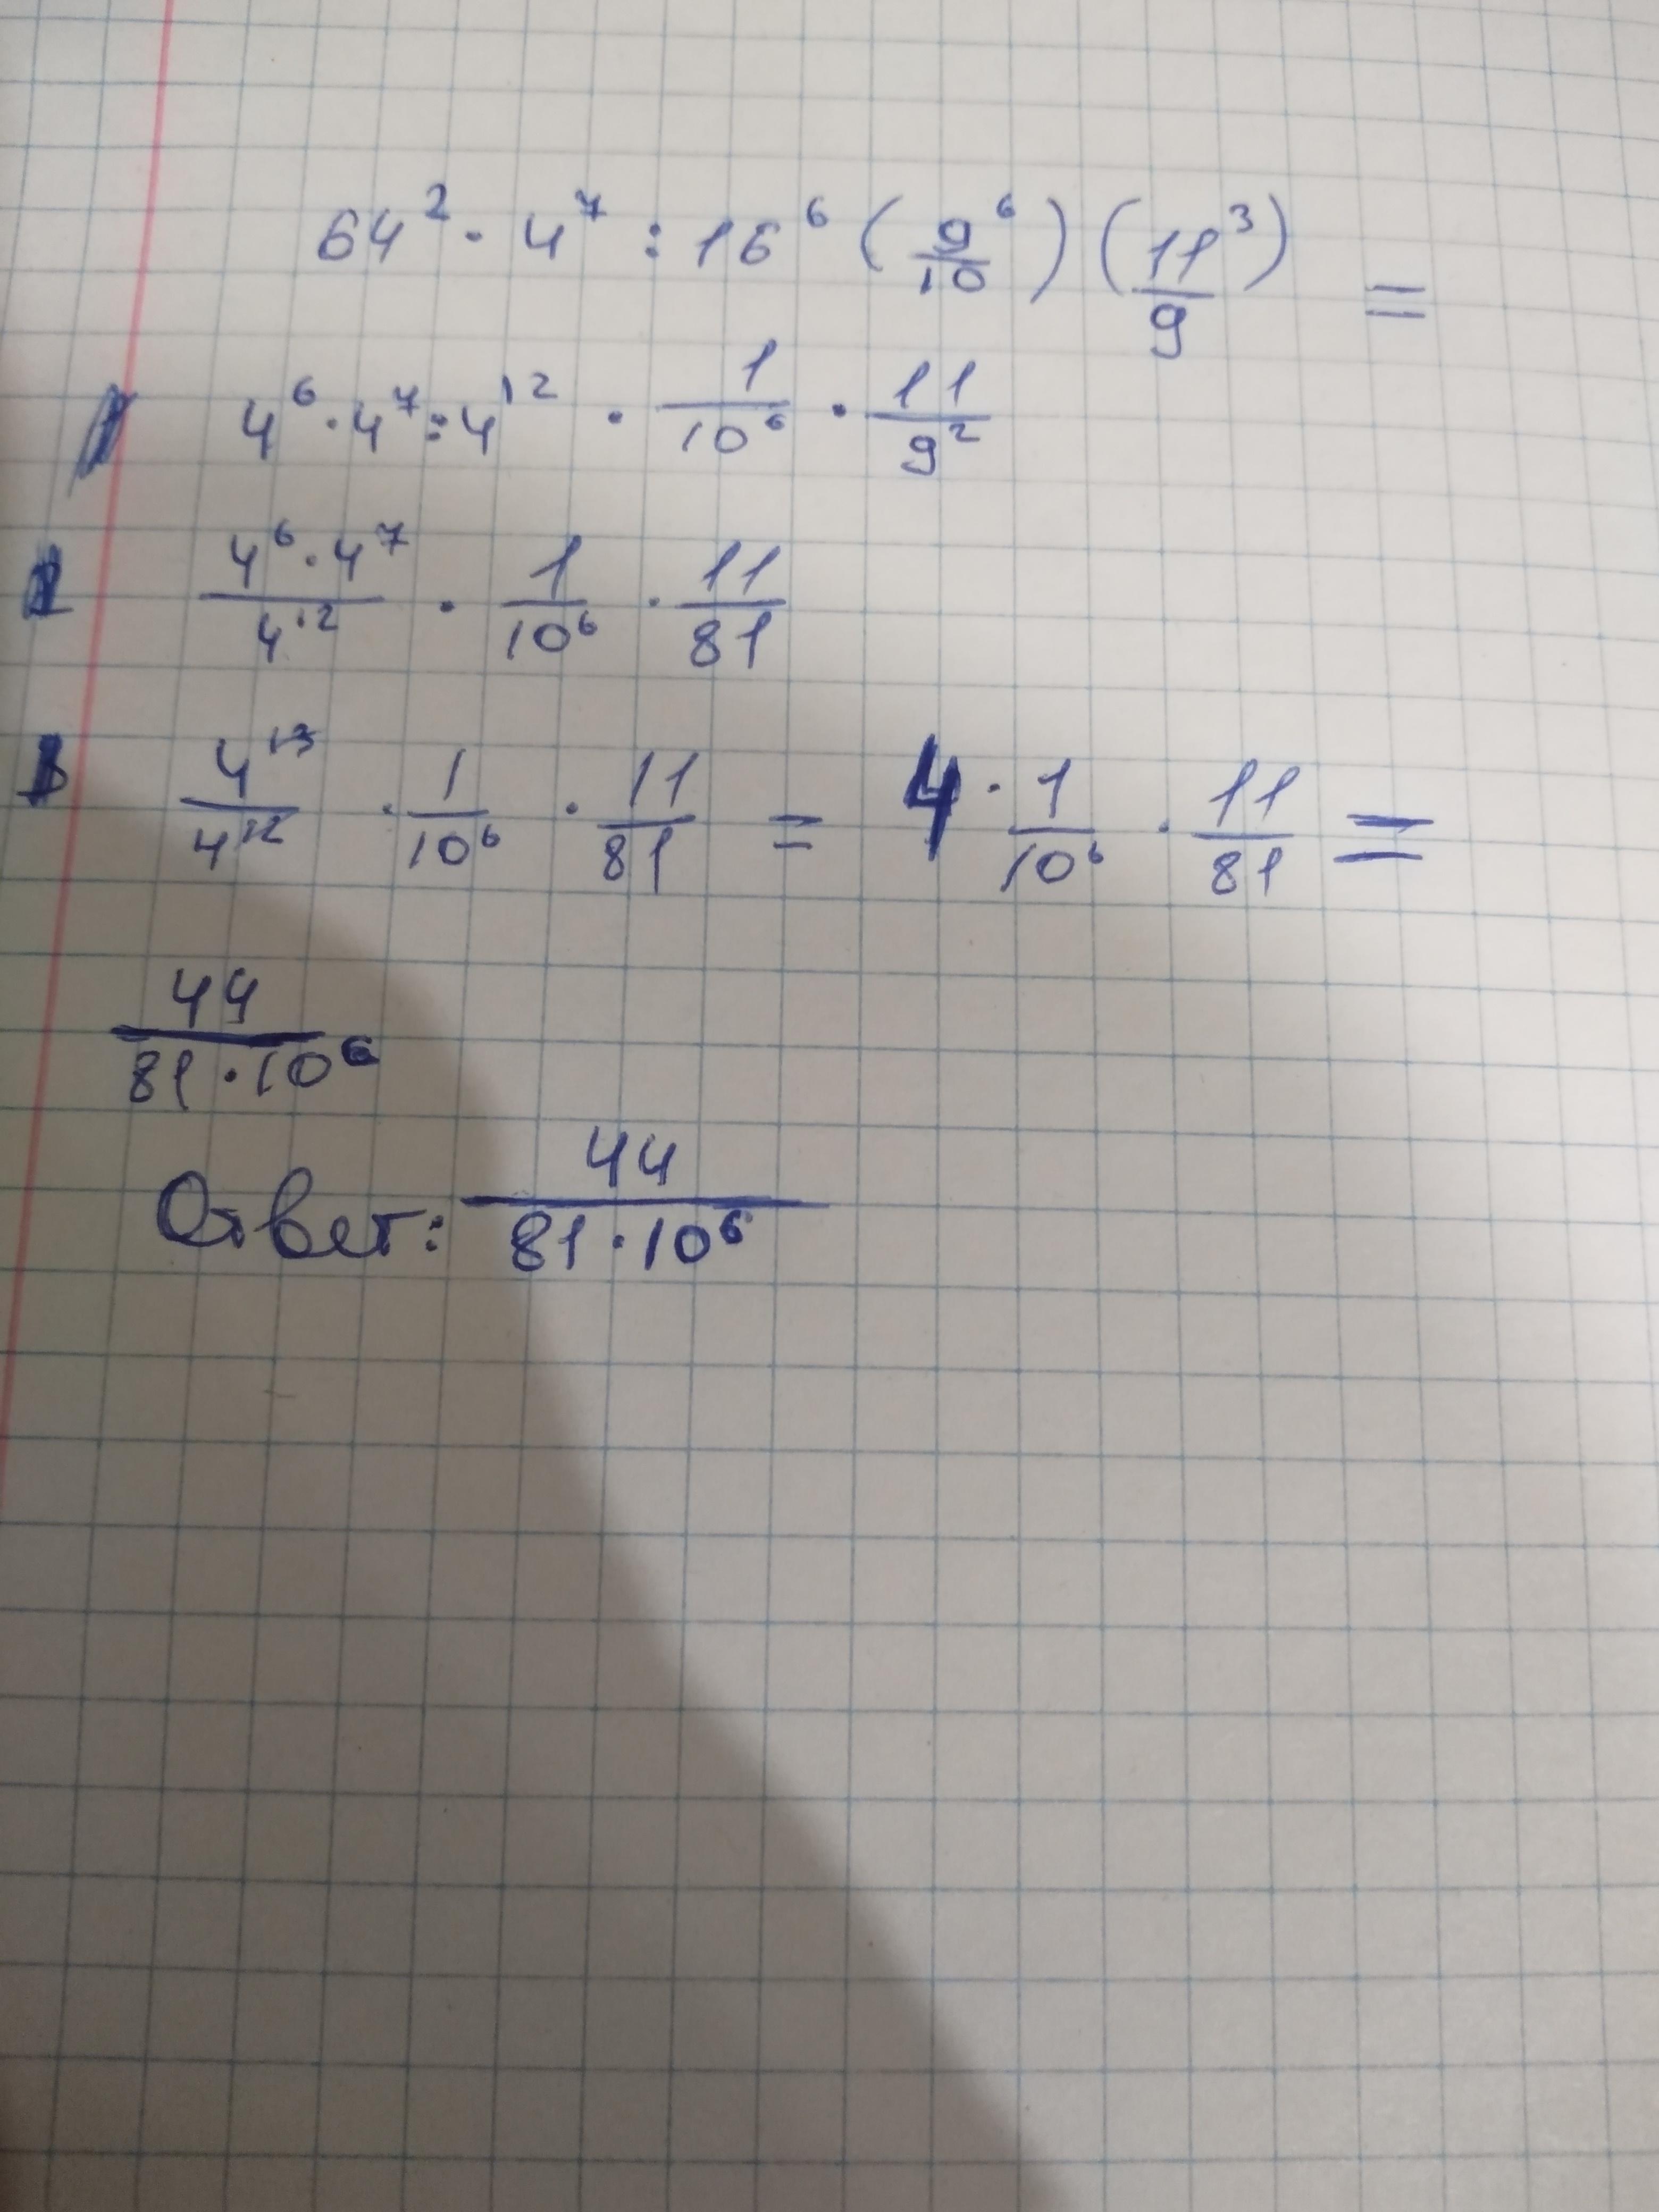 64² · 4⁷ : 16⁶ (9⁶/10) (11³/9) =
4⁶ · 4⁷ : 4¹² · 1/10⁶ · 11/9²
4⁶ · 4⁷/4¹² · 1/10⁶ · 11/81
4¹³/4¹² · 1/10⁶ · 11/81 = 4 · 1/10⁶ · 11/81 =
44/81 · 10⁶
Ответ: 44/81 · 10⁶